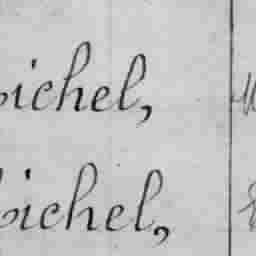 ichel,
ichel,